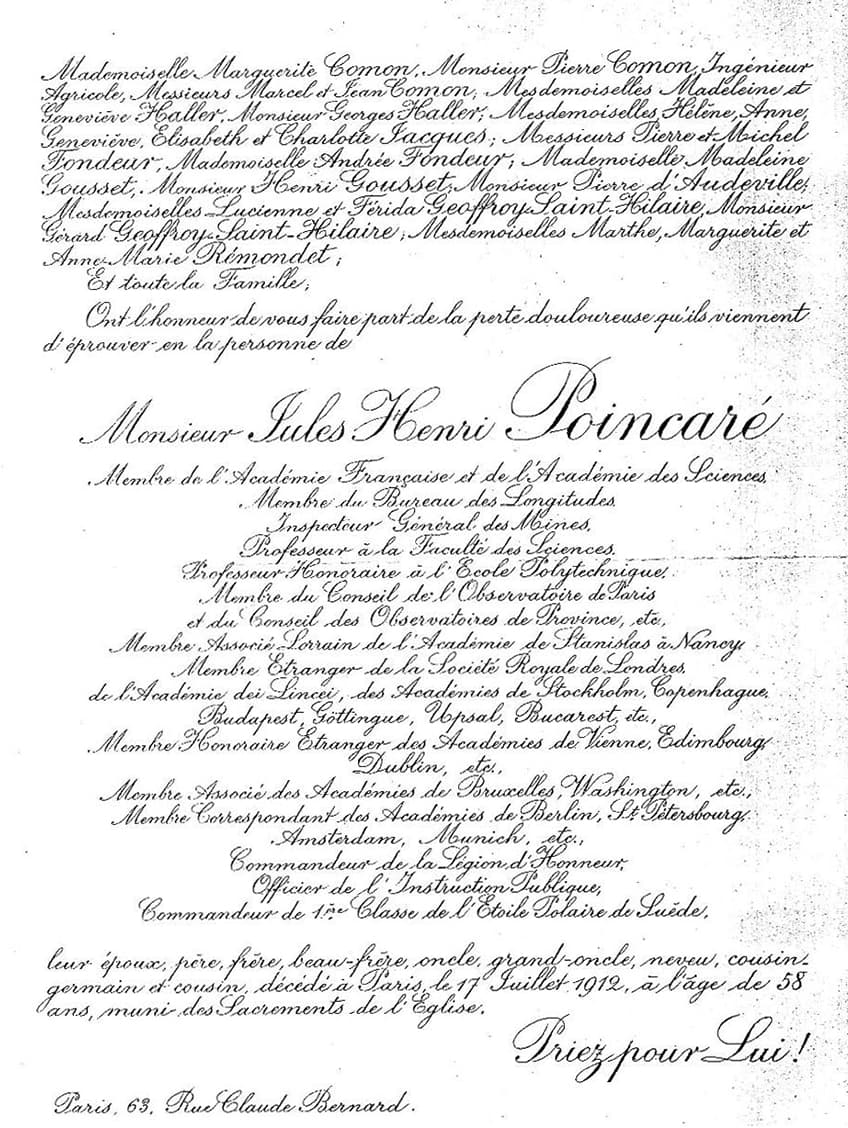 Mademoiselle Marguerite Comon, Monsieur Pierre Comon, Ingénieur
Agricole, Messieurs Marcel et Jean Comon; Mesdemoiselles Madeleine et
Geneviève Haller, Monsieur Georges Haller; Mesdemoiselles Hélène, Anne,
Geneviève, Elisabeth et Charlotte Jacques; Messieurs Pierre et Michel
Fondeur, Mademoiselle Andrée Fondeur; Mademoiselle Madeleine
Gousset, Monsieur Henri Gousset; Monsieur Pierre d'Audeville;
Mesdemoiselles Lucienne et Férida Geoffroy Saint-Hilaire, Monsieur
Gérard Geoffroy Saint-Hilaire; Mesdemoiselles Marthe, Marguerite et
Anne-Marie Rémondet;
Et toute la Famille;
Ont l'honneur de vous faire part de la perte douloureuse qu'ils viennent
d'éprouver en la personne de
Monsieur Jules Henri Poincaré
Membre de l'Académie Française et de l'Académie des Sciences,
Membre du Bureau des Longitudes,
Inspecteur Général des Mines,
Professeur à la Faculté des Sciences,
Professeur Honoraire à l'Ecole Polytechnique,
Membre du Conseil de l'Observatoire de Paris
et du Conseil des Observatoires de Province, etc.,
Membre Associé-Lorrain de l'Académie de Stanislas à Nancy,
Membre Etranger de la Société Royale de Londres,
de l'Académie dei Lincei, des Académies de Stockholm, Copenhague,
Budapest, Göttingue, Upsal, Bucarest, etc.,
Membre Honoraire Etranger des Académies de Vienne, Edimbourg,
Dublin, etc.,
Membre Associé des Académies de Bruxelles, Washington, etc.,
Membre Correspondant des Académies de Berlin, St Pétersbourg,
Amsterdam, Munich, etc.,
Commandeur de la Légion d'Honneur,
Officier de l'Instruction Publique,
Commandeur de 1ère Classe de l'Etoile Polaire de Suède,
leur époux, père, frère, beau-frère, oncle, grand-oncle, neveu, cousin-
germain et cousin, décédé à Paris, le 17 Juillet 1912, à l'âge de 58
ans, muni des Sacrements de l'Eglise.
Priez pour Lui!
Paris, 63, Rue Claude Bernard.